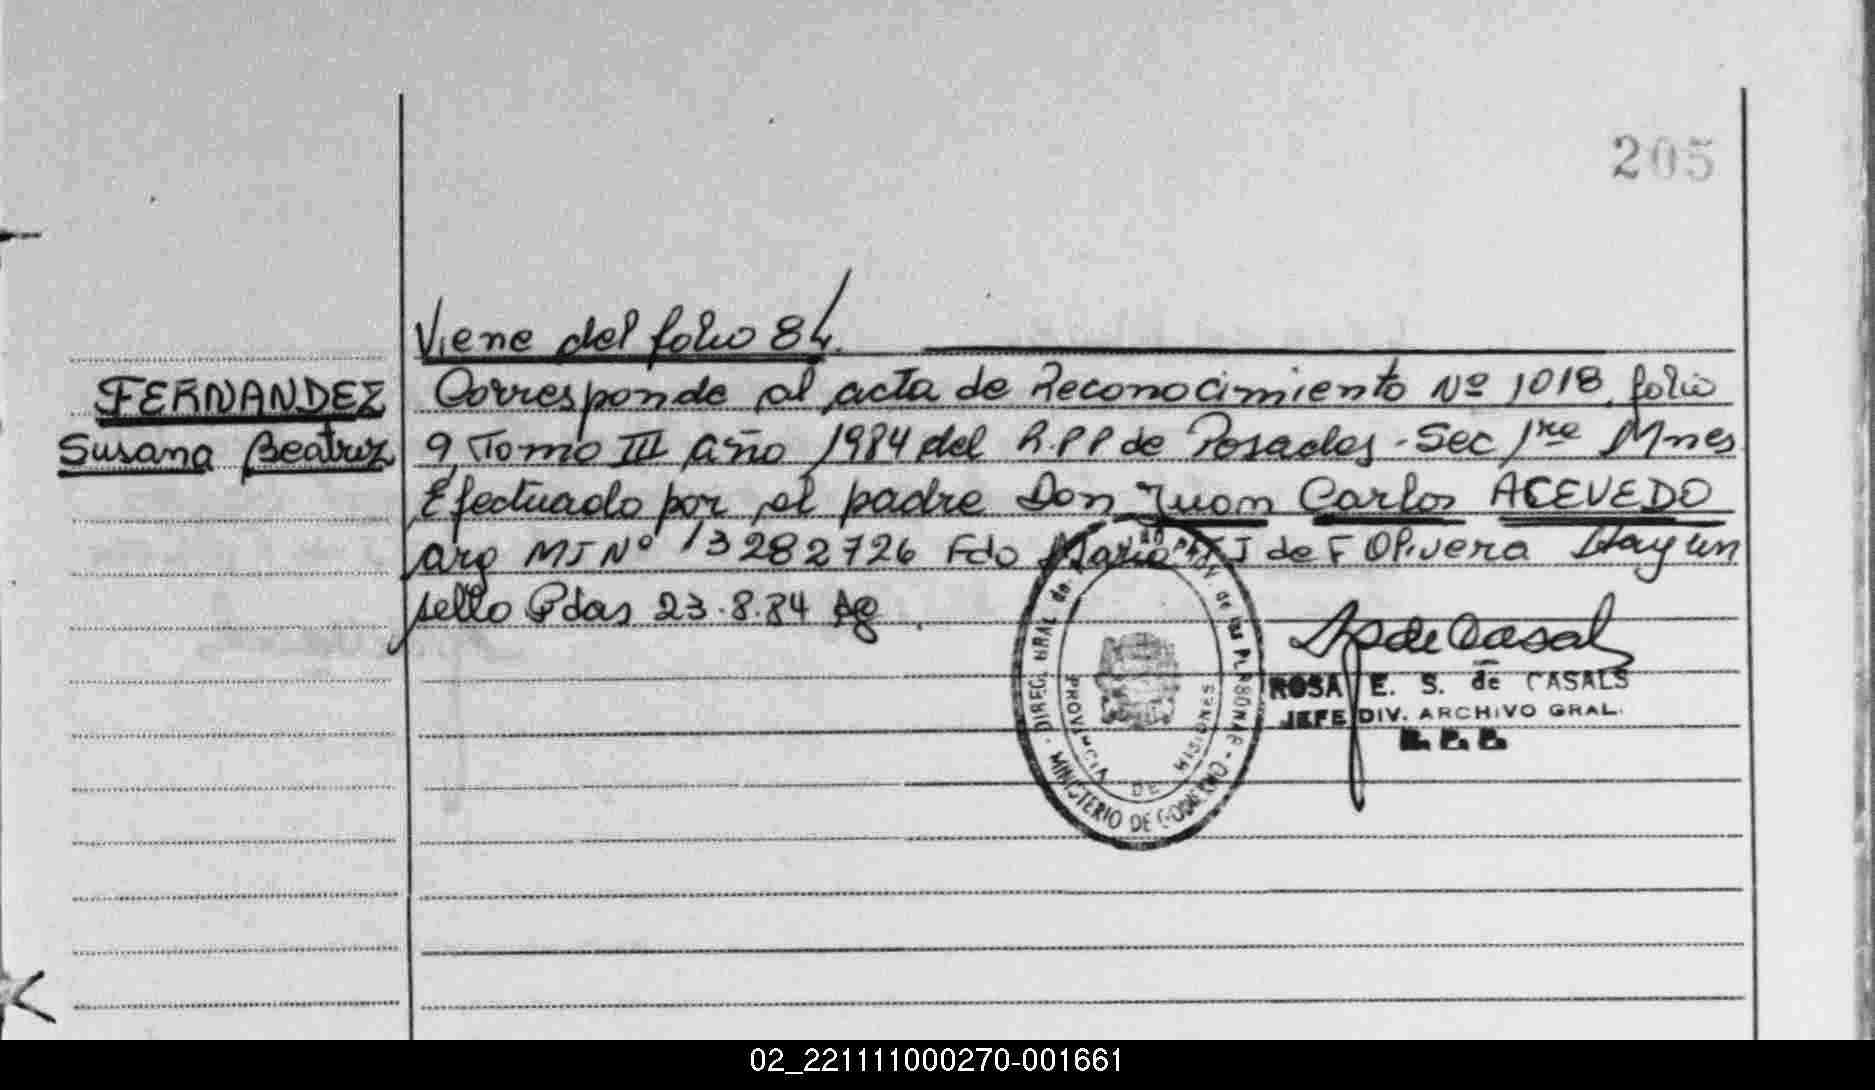 205
Viene del folio 84.
FERNANDEZ
Susana Beatriz
Corresponde al acta de Reconocimiento Nº 1018, folio
9 Tomo III Año 1984 del R.P.P de Posadas - Sec 1ra Mnes
Efectuado por el padre Don Juan Carlos ACEVEDO
arg MI Nº 13282726 Fdo Maria I de F Olivera Hay un
sello Pdas 23.8.84
DIREC. GRAL de las PERSONAS
PROVINCIA DE MISIONES
MINISTERIO DE GOBIERNO
ROSA E. S. de CASALS
JEFE DIV. ARCHIVO GRAL.
02_221111000270-001661